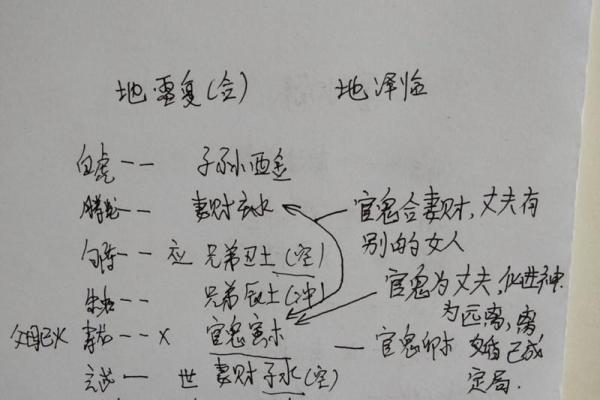 地雷复(合) 地泽临
白虎-- 子孙酉金
腾蛇-- 妻财亥水
官鬼合妻财,丈夫有
别的女人
勾陈-- 应 兄弟丑土(空)
朱雀-- 兄弟辰土(冲)
官鬼为丈夫,化进神
父母巳火 青龙--× 官鬼寅木 — 官鬼卯木
为 离,离
婚已成
定局.
玄武— 世 妻财子水(空)